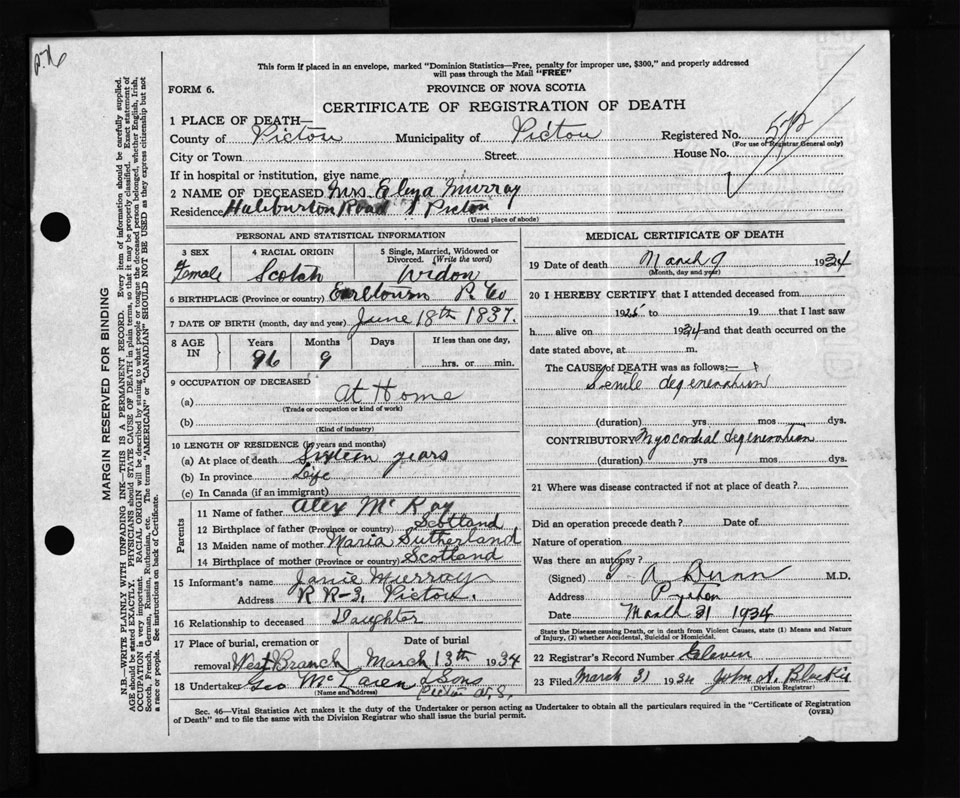 This form if placed in an envelope, marked "Dominion Statistics—Free, penalty for improper use, $300," and properly addressed
will pass through the Mail "FREE"
FORM 6.
PROVINCE OF NOVA SCOTIA
CERTIFICATE OF REGISTRATION OF DEATH
1 PLACE OF DEATH—
County of Pictou Municipality of Pictou Registered No.
(For use of Registrar General only)
City or Town Street House No.
If in hospital or institution, give name
2 NAME OF DECEASED Mrs. Eliza Murray
Residence Haliburton Road Pictou
(Usual place of abode)
PERSONAL AND STATISTICAL INFORMATION
3 SEX 4 RACIAL ORIGIN 5 Single, Married, Widowed or
Divorced. (Write the word)
Female Scotch Widow
6 BIRTHPLACE (Province or country) Earltown P. Co
7 DATE OF BIRTH (month, day and year) June 18th 1837.
8 AGE IN Years Months Days If less than one day,
96 9 hrs. or min.
9 OCCUPATION OF DECEASED
(a) At Home
(Trade or occupation or kind of work)
(b)
(Kind of industry)
10 LENGTH OF RESIDENCE (in years and months)
(a) At place of death Sixteen years
(b) In province Life
(c) In Canada (if an immigrant)
Parents
11 Name of father Alex McKay
12 Birthplace of father (Province or country) Scotland
13 Maiden name of mother Maria Sutherland
14 Birthplace of mother (Province or country) Scotland
15 Informant's name Janie Murray
Address R R-3, Pictou.
16 Relationship to deceased Daughter
17 Place of burial, cremation or Date of burial
removal West Branch March 13th 1934
18 Undertaker Geo McLaren & Sons
(Name and address) Pictou N.S.
MEDICAL CERTIFICATE OF DEATH
19 Date of death March 9 1934
(Month, day and year)
20 I HEREBY CERTIFY that I attended deceased from
1925 to 19 that I last saw
h alive on 1934 and that death occurred on the
date stated above, at m.
The CAUSE of DEATH was as follows:—
Senile degeneration
(duration) yrs mos dys.
CONTRIBUTORY Myocordial degeneration
(duration) yrs mos dys.
21 Where was disease contracted if not at place of death?
Did an operation precede death? Date of
Nature of operation
Was there an autopsy?
(Signed) A Dunn M.D.
Address Pictou
Date March 31 1934
State the Disease causing Death, or in death from Violent Causes, state (1) Means and Nature
of Injury, (2) whether Accidental, Suicidal or Homicidal.
22 Registrar's Record Number Eleven
23 Filed March 31 1934 John A. Blackie
(Division Registrar)
Sec. 46—Vital Statistics Act makes it the duty of the Undertaker or person acting as Undertaker to obtain all the particulars required in the "Certificate of Registration
of Death" and to file the same with the Division Registrar who shall issue the burial permit.
(OVER)
MARGIN RESERVED FOR BINDING
N.B.—WRITE PLAINLY WITH UNFADING INK—THIS IS A PERMANENT RECORD. Every item of information should be carefully supplied.
AGE should be stated EXACTLY. PHYSICIANS should STATE CAUSE OF DEATH in plain terms, so that it may be properly classified. Exact statement of
OCCUPATION is very important. RACIAL ORIGIN will be described by stating to what people or tongue the deceased person belonged, whether English, Irish,
Scotch, French, German, Russian, Ruthenian, etc. The terms "AMERICAN" or "CANADIAN" SHOULD NOT BE USED as they express citizenship but not
a race or people. See instructions on back of Certificate.